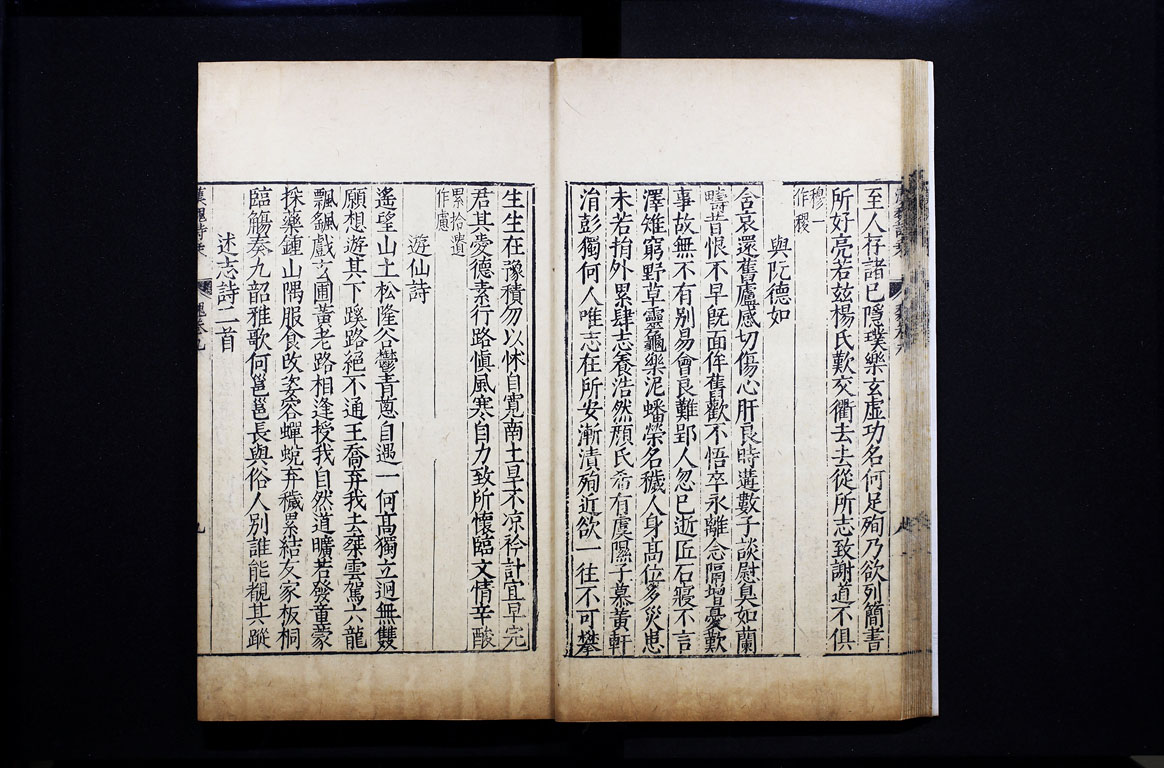 至人存諸已隱璞樂玄虛功名何足殉乃欲列簡書
所好亮若玆楊氏歎交衢去去從所志致謝道不俱
穆一
作稷
與阮德如
含哀還舊廬感切傷心肝良時遘數子談慰臭如蘭
疇昔恨不早旣面侔舊歡不悟卒永離念隔增憂歎
事故無不有别易會良難郢人忽已逝匠石寢不言
澤雉窮野草靈龜樂泥蟠榮名穢人身高位多災患
未若捐外累肆志養浩然顔氏希有虞隰子慕黃軒
涓彭獨何人唯志在所安漸漬殉近欲一往不可攀
生生在豫積勿以怵自寬南土旱不凉衿計宜早完
君其愛德素行路愼風寒自力致所懷臨文情辛酸
累拾遺
作慮
遊仙詩
遙望山上松隆谷鬱青蔥自遇一何高獨立迥無雙
願想遊其下蹊路絕不通王喬弃我去乘雲駕六龍
飄颻戲玄圃黃老路相逢授我自然道曠若發童蒙
採藥鍾山隅服食改姿容蟬蛻弃穢累結友家板桐
臨觴奏九韶雅歌何邕邕長與俗人別誰能覩其蹤
述志詩二首
漢魏詩
魏卷九
九